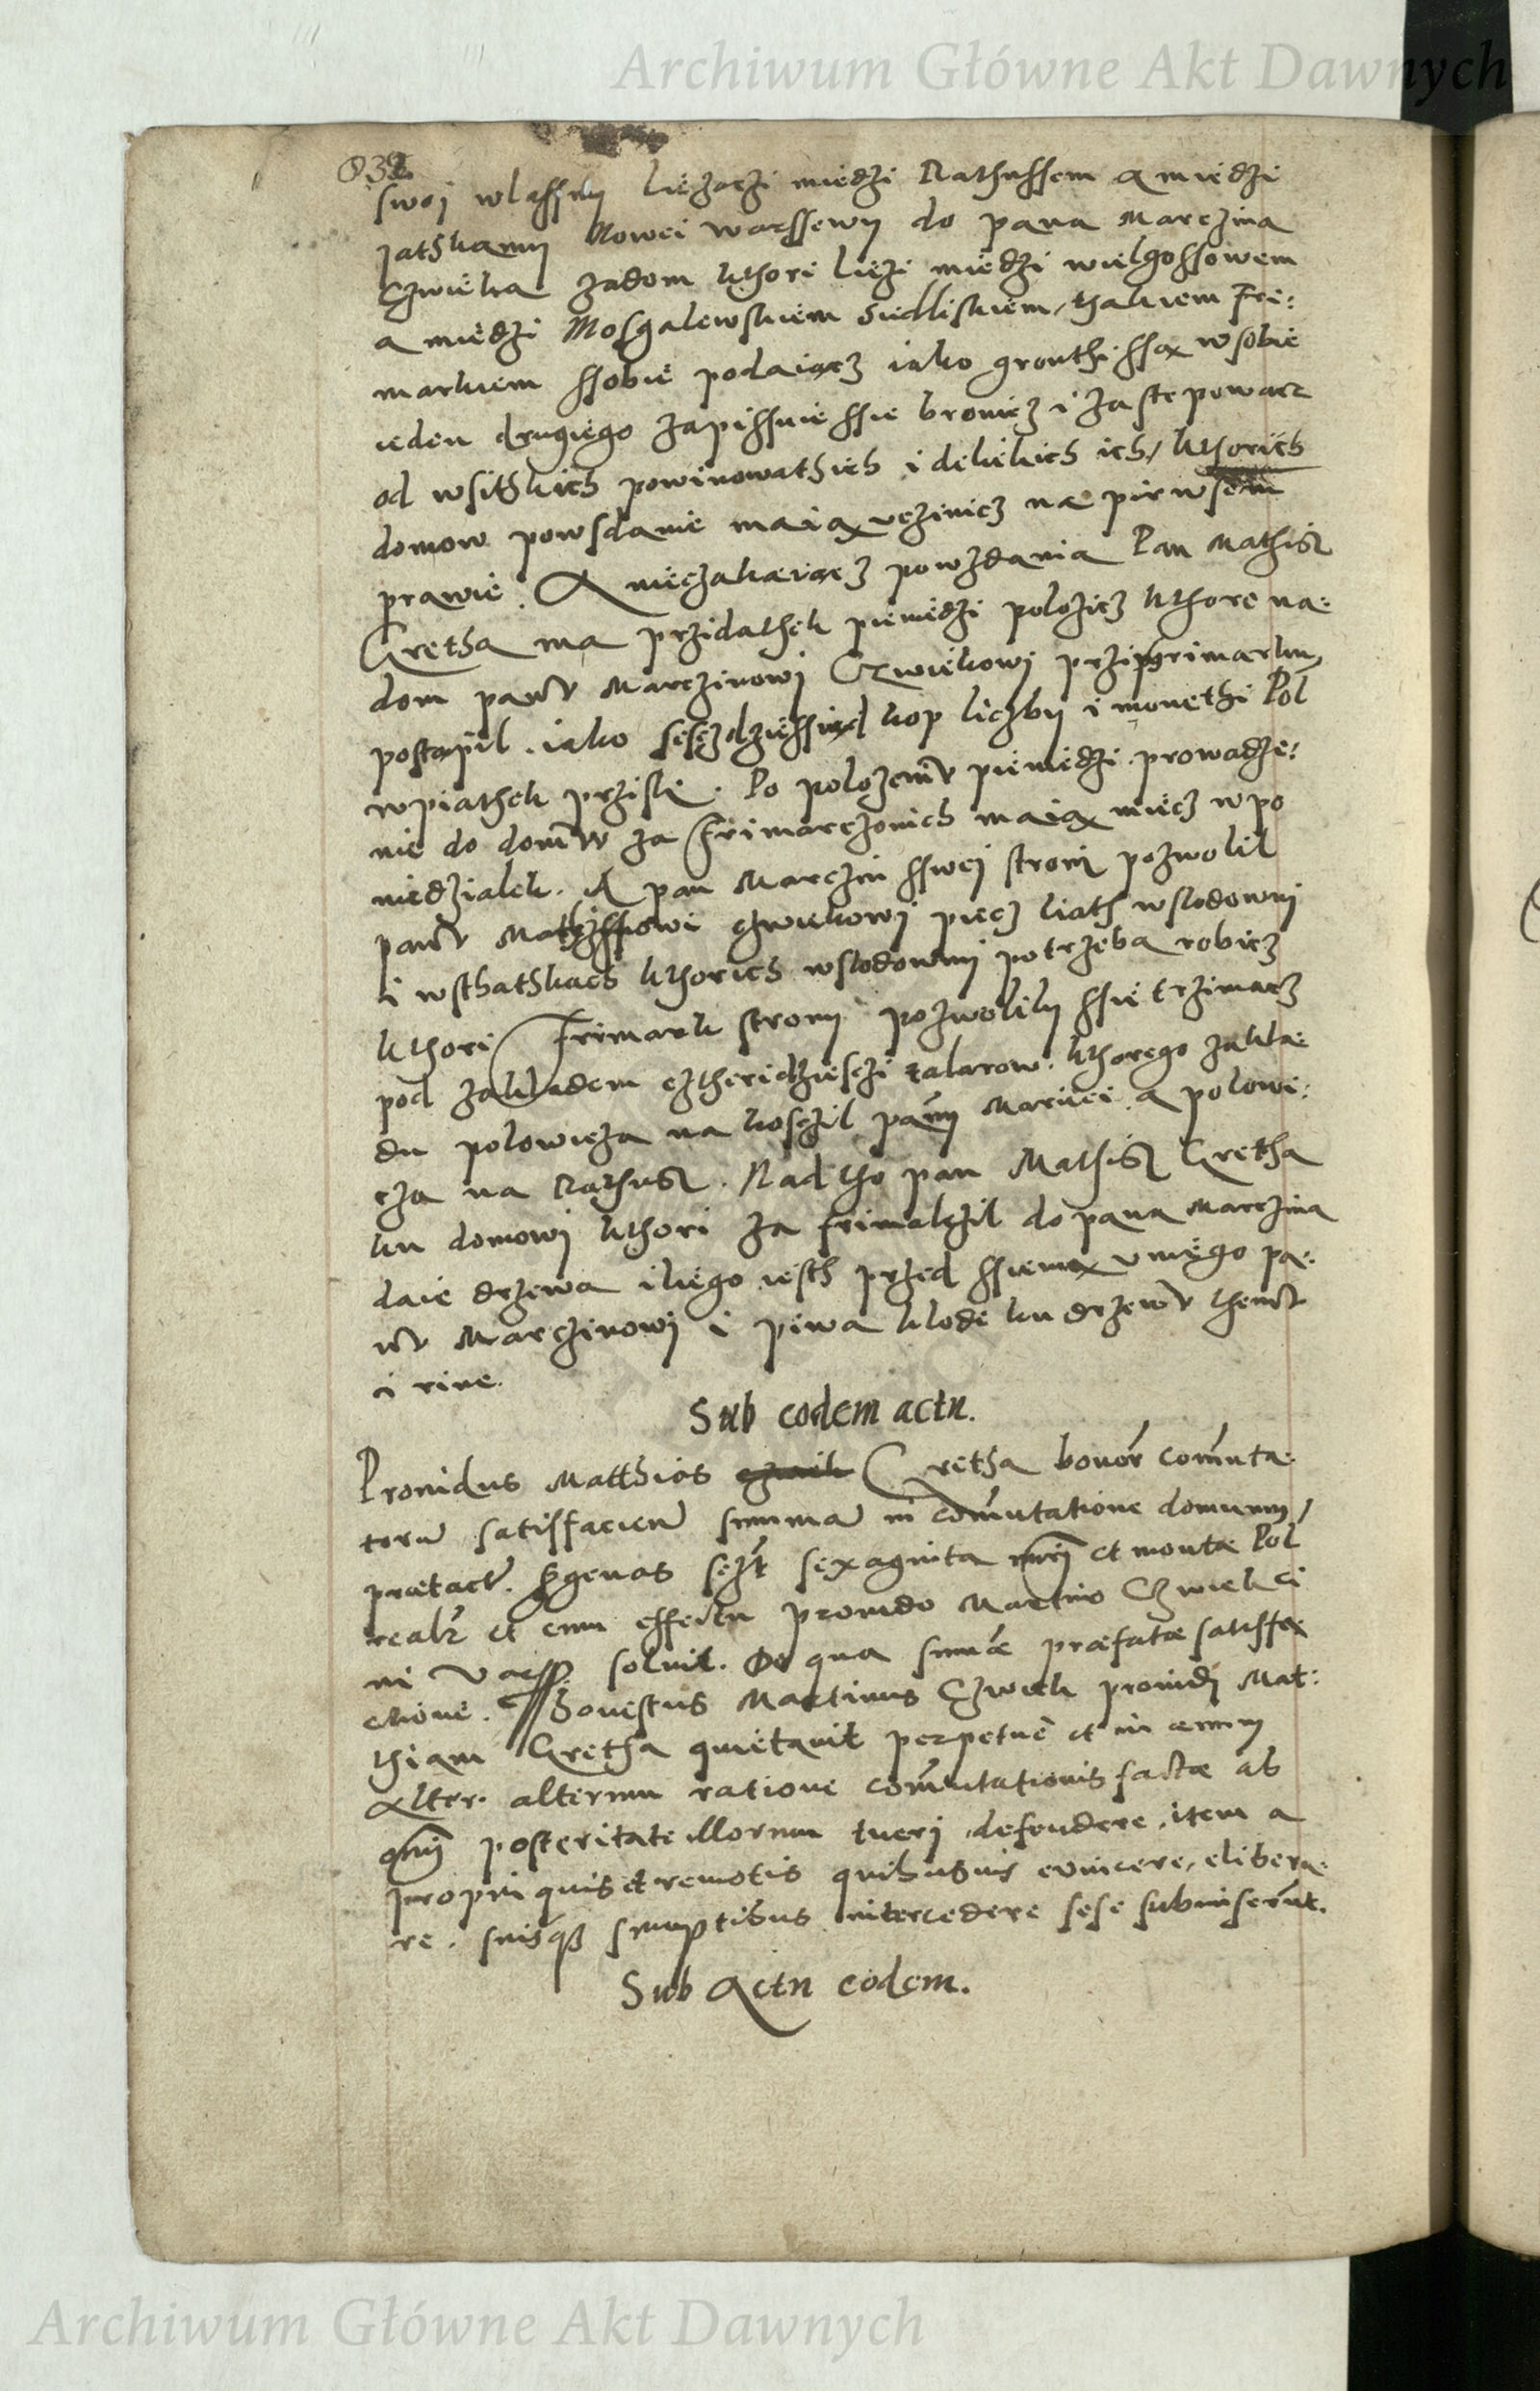 Archiwum Główne Akt Dawnych
832
swoj wlassny liezaczi miedzi Rathussem a miedzi
jathkamy Nowei warssewy do pana Marczina
Czwieka zadom kthori liezi miedzi wielgossowem
a miedzi Mosgalewskiem Siedliskiem, thakiem Fri:
markiem ssobie podaiącz iako gronthi ssą w sobie
ieden drugiego zapissuie ssie bronicz i zastepowacz
od wsitkich powinowathich i delekich ich, kthorich
domow powsdanie maią vczinicz na pirwsem
prawie. A nieczakaiącz powzdania Pan Mathisz
Gretha ma przidathek pieniedzi polozicz kthore na:
dom panu Marczinowj Czwiekowj przi frimarku
postąpil. iako sesczdziessiąd kop liczby i monethi Pol
wpiathek przisli. Po polozeniu pieniedzi prowadze:
nie do domu za frimarczonich maią miecz w po
niedzialek. A pan Marczin sswej stroni pozwolil
panu czwiekowj piecz liath wslodowni
i wsthathkach kthorich wslodowni potrzeba robicz
kthori Frimark strony pozwolily ssie trzimacz
pod zakladem cztheridziesczi talarow. kthorego zakla:
du polowicza na kosczil panny Mariiei a polowi:
cza na Rathusz. Nad tho pan Mathisz Gretha
ku domowj kthori za frimalczil do pana Marczina
daie drzewa iliego iesth przed ssienią v niego pa:
nu Marczinowj i piwa klode ku drzewu themu
i rine.
Sub eodem actu.
Prouidus Matthias Gretha bonor com̄uta:
toru satisfacien summa in com̄utatione domuum,
prætact. sexaginta nūri et montæ Pol
realr et cum effectu prouido Martino Czwiek ci
ni Varss soluit. De qua sum̄æ præfatæ satisfa
ctione. Honestus Martinus Czwiek prouidū Mat:
thiam Gretha quietauit perpetue et in æuum
Alter. alterum ratione com̄utationis factæ ab
om̄i posteritate illorum tuerj defendere, item a
propinquis et remotis quibusuis euincere, elibera:
re. suisq̨ sumptibus intercedere sese submiserunt.
Sub Actu eodem.
Archiwum Główne Akt Dawnych